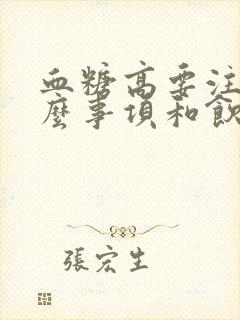 血糖高要注
麼事項和飲
張宏生